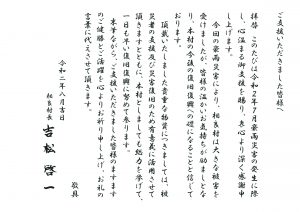 ご支援いただきました皆様へ
拝啓　このたびは令和２年７月豪雨災害の発生に際
し、心温まる御支援を賜り、衷心より深く感謝申
し上げます。
今回の豪雨災害により、相良村は大きな被害を
受けましたが、皆様の温かいお気持ちが励ましとな
り、本村の今後の復旧復興への礎になることと信じて
おります。
頂戴いたしました貴重な物資につきましては、被
災者の支援及び災害復旧のため有意義に活用させて
頂きますとともに、本村としましても総力を挙げて、
一日も早い復旧復興に努めて参ります。
末筆ながら、ご支援いただきました皆様のますます
のご健勝とご活躍を心よりお祈り申し上げ、お礼の
言葉に代えさせて頂きます。
敬具
令和二年八月吉日
相良村長
吉松　啓一